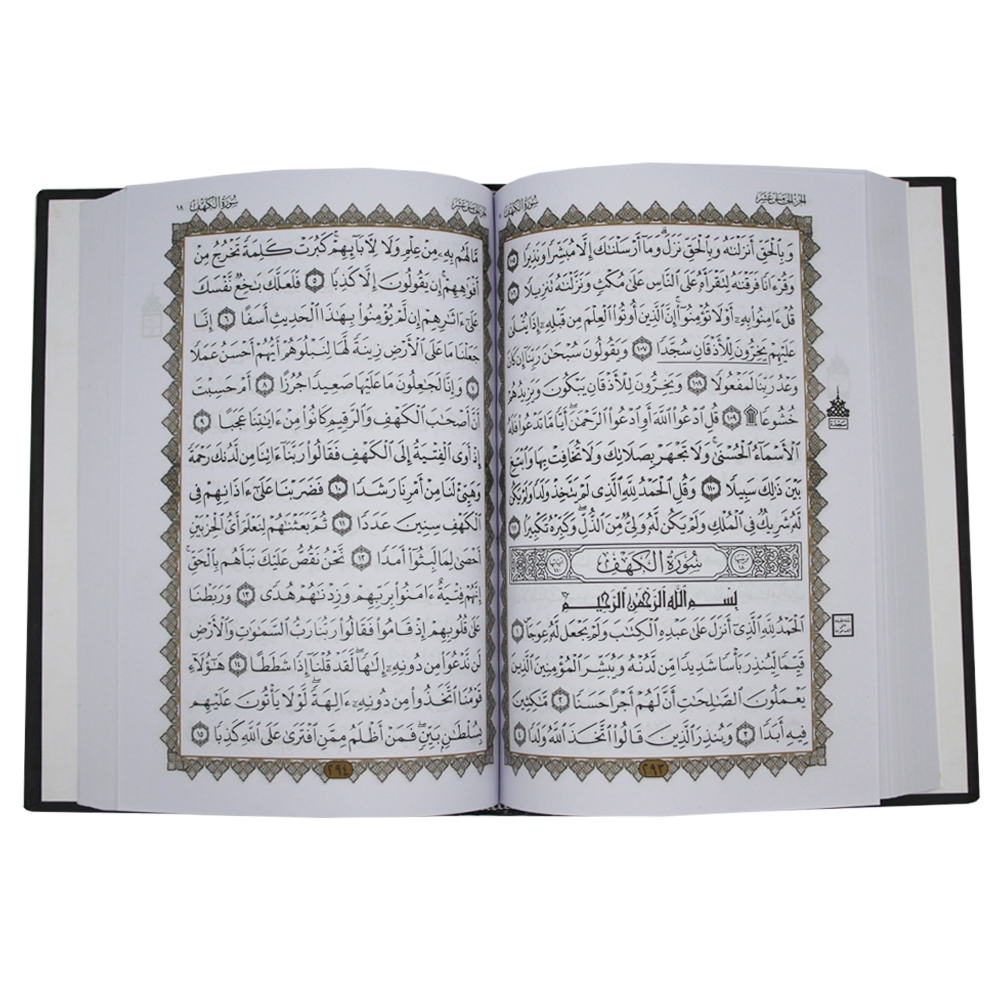 الجزء الخامس عشر
سُورَةُ الكَهْفِ
وَبِٱلْحَقِّ أَنزَلْنَٰهُ وَبِٱلْحَقِّ نَزَلَ ۗ وَمَآ أَرْسَلْنَٰكَ إِلَّا مُبَشِّرًا وَنَذِيرًا ١٠٥
وَقُرْءَانًا فَرَقْنَٰهُ لِتَقْرَأَهُۥ عَلَى ٱلنَّاسِ عَلَىٰ مُكْثٍ وَنَزَّلْنَٰهُ تَنزِيلًا ١٠٦
قُلْ ءَامِنُوا۟ بِهِۦٓ أَوْ لَا تُؤْمِنُوٓا۟ ۚ إِنَّ ٱلَّذِينَ أُوتُوا۟ ٱلْعِلْمَ مِن قَبْلِهِۦٓ إِذَا يُتْلَىٰ
عَلَيْهِمْ يَخِرُّونَ لِلْأَذْقَانِ سُجَّدًا ١٠٧ وَيَقُولُونَ سُبْحَٰنَ رَبِّنَآ إِن كَانَ
وَعْدُ رَبِّنَا لَمَفْعُولًا ١٠٨ وَيَخِرُّونَ لِلْأَذْقَانِ يَبْكُونَ وَيَزِيدُهُمْ
خُشُوعًا ۩ ١٠٩ قُلِ ٱدْعُوا۟ ٱللَّهَ أَوِ ٱدْعُوا۟ ٱلرَّحْمَٰنَ ۖ أَيًّا مَّا تَدْعُوا۟ فَلَهُ
ٱلْأَسْمَآءُ ٱلْحُسْنَىٰ ۚ وَلَا تَجْهَرْ بِصَلَاتِكَ وَلَا تُخَافِتْ بِهَا وَٱبْتَغِ
بَيْنَ ذَٰلِكَ سَبِيلًا ١١٠ وَقُلِ ٱلْحَمْدُ لِلَّهِ ٱلَّذِى لَمْ يَتَّخِذْ وَلَدًا وَلَمْ يَكُن
لَّهُۥ شَرِيكٌ فِى ٱلْمُلْكِ وَلَمْ يَكُن لَّهُۥ وَلِىٌّ مِّنَ ٱلذُّلِّ ۖ وَكَبِّرْهُ تَكْبِيرًۢا ١١١
سُورَةُ الكَهْفِ
بِسْمِ ٱللَّهِ ٱلرَّحْمَٰنِ ٱلرَّحِيمِ
ٱلْحَمْدُ لِلَّهِ ٱلَّذِىٓ أَنزَلَ عَلَىٰ عَبْدِهِ ٱلْكِتَٰبَ وَلَمْ يَجْعَل لَّهُۥ عِوَجًا ۜ ١
قَيِّمًا لِّيُنذِرَ بَأْسًا شَدِيدًا مِّن لَّدُنْهُ وَيُبَشِّرَ ٱلْمُؤْمِنِينَ ٱلَّذِينَ
يَعْمَلُونَ ٱلصَّٰلِحَٰتِ أَنَّ لَهُمْ أَجْرًا حَسَنًا ٢ مَّٰكِثِينَ
فِيهِ أَبَدًا ٣ وَيُنذِرَ ٱلَّذِينَ قَالُوا۟ ٱتَّخَذَ ٱللَّهُ وَلَدًا ٤
٢٩٣
سُورَةُ الكَهْفِ ١٨
مَّا لَهُم بِهِۦ مِنْ عِلْمٍ وَلَا لِءَابَآئِهِمْ ۚ كَبُرَتْ كَلِمَةً تَخْرُجُ مِنْ
أَفْوَٰهِهِمْ ۚ إِن يَقُولُونَ إِلَّا كَذِبًا ٥ فَلَعَلَّكَ بَٰخِعٌ نَّفْسَكَ
عَلَىٰٓ ءَاثَٰرِهِمْ إِن لَّمْ يُؤْمِنُوا۟ بِهَٰذَا ٱلْحَدِيثِ أَسَفًا ٦ إِنَّا
جَعَلْنَا مَا عَلَى ٱلْأَرْضِ زِينَةً لَّهَا لِنَبْلُوَهُمْ أَيُّهُمْ أَحْسَنُ عَمَلًا
٧ وَإِنَّا لَجَٰعِلُونَ مَا عَلَيْهَا صَعِيدًا جُرُزًا ٨ أَمْ حَسِبْتَ
أَنَّ أَصْحَٰبَ ٱلْكَهْفِ وَٱلرَّقِيمِ كَانُوا۟ مِنْ ءَايَٰتِنَا عَجَبًا ٩
إِذْ أَوَى ٱلْفِتْيَةُ إِلَى ٱلْكَهْفِ فَقَالُوا۟ رَبَّنَآ ءَاتِنَا مِن لَّدُنكَ رَحْمَةً
وَهَيِّئْ لَنَا مِنْ أَمْرِنَا رَشَدًا ١٠ فَضَرَبْنَا عَلَىٰٓ ءَاذَانِهِمْ فِى
ٱلْكَهْفِ سِنِينَ عَدَدًا ١١ ثُمَّ بَعَثْنَٰهُمْ لِنَعْلَمَ أَىُّ ٱلْحِزْبَيْنِ
أَحْصَىٰ لِمَا لَبِثُوٓا۟ أَمَدًا ١٢ نَّحْنُ نَقُصُّ عَلَيْكَ نَبَأَهُم بِٱلْحَقِّ ۚ
إِنَّهُمْ فِتْيَةٌ ءَامَنُوا۟ بِرَبِّهِمْ وَزِدْنَٰهُمْ هُدًى ١٣ وَرَبَطْنَا
عَلَىٰ قُلُوبِهِمْ إِذْ قَامُوا۟ فَقَالُوا۟ رَبُّنَا رَبُّ ٱلسَّمَٰوَٰتِ وَٱلْأَرْضِ
لَن نَّدْعُوَا۟ مِن دُونِهِۦٓ إِلَٰهًا ۖ لَّقَدْ قُلْنَآ إِذًا شَطَطًا ١٤ هَٰٓؤُلَآءِ
قَوْمُنَا ٱتَّخَذُوا۟ مِن دُونِهِۦٓ ءَالِهَةً ۖ لَّوْلَا يَأْتُونَ عَلَيْهِم
بِسُلْطَٰنٍۭ بَيِّنٍ ۖ فَمَنْ أَظْلَمُ مِمَّنِ ٱفْتَرَىٰ عَلَى ٱللَّهِ كَذِبًا ١٥
٢٩٤